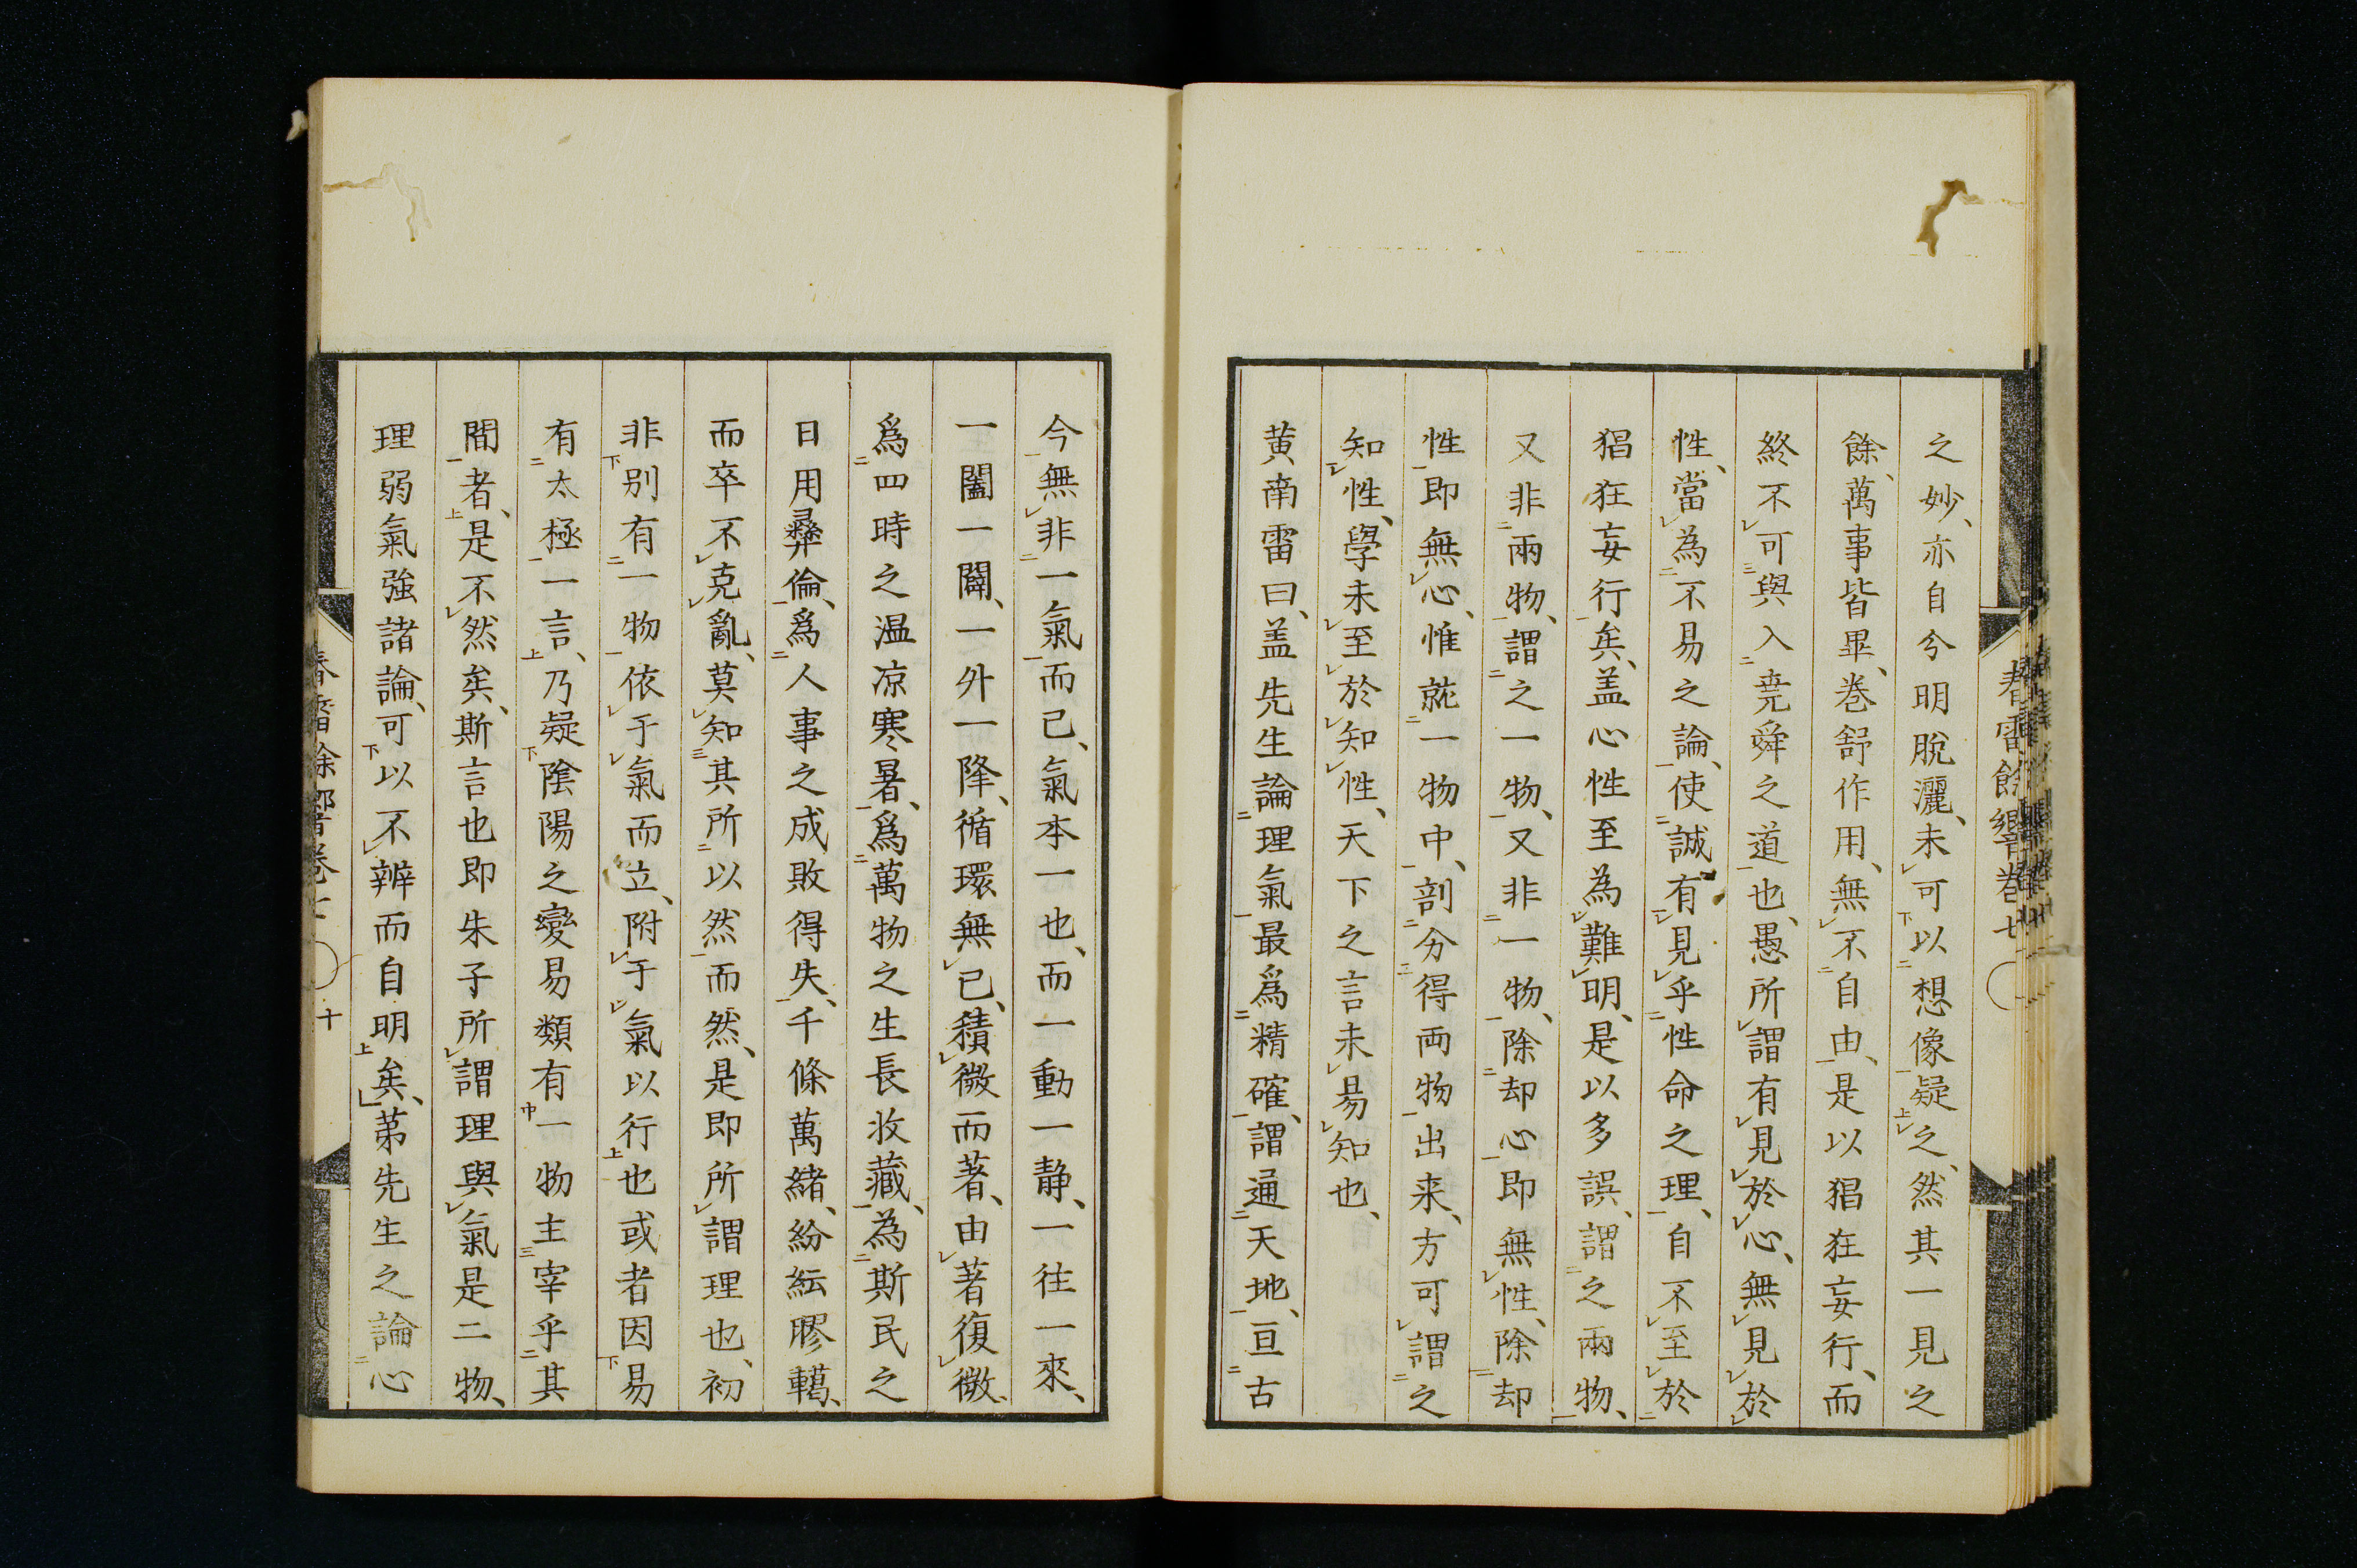 之妙、亦自今明脫灑、未可以想像疑之、然其一見之
餘、萬事皆畢、巻舒作用、無不自由、是以猖狂妄行、而
終不可與入尭舜之道也、愚所謂有見於心、無見於
性、當為不易之論、使誠有見乎性命之理、自不至於
猖狂妄行矣、盖心性至為難明、是以多誤、謂之兩物、
又非兩物、謂之一物、又非一物、除却心即無性、除却
性即無心、惟就一物中、剖分得両物出来、方可謂之
知性、學未至於知性、天下之言未易知也、
黄南雷曰、盖先生論理氣最爲精確、謂通天地、亘古
春雷餘響巻七
今無非一氣而已、氣本一也、而一動一静、一往一來、
一闔一闢、一外一降、循環無已、積微而著、由著復微、
爲四時之温凉寒暑、爲萬物之生長收藏、為斯民之
日用彛倫、爲人事之成敗得失、千條萬緒、紛紜膠轕、
而卒不克亂、莫知其所以然而然、是即所謂理也、初
非別有一物依于氣而立、附于氣以行也或者因易
有太極一言、乃疑陰陽之變易類有一物主宰乎其
間者、是不然矣、斯言也即朱子所謂理與氣是二物、
理弱氣強諸論、可以不辨而自明矣、」苐先生之論心
十